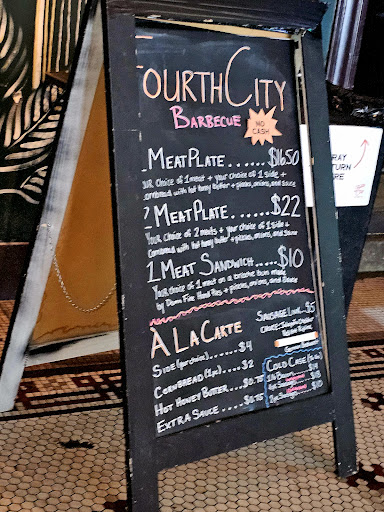 FOURTHCITY
BARBECUE
NO CASH
1 MEAT PLATE......$16.50
YOUR choice of 1 meat + your choice of 1 side +
cornbread with hot honey butter + pickles, onions, and sauce
2 MEAT PLATE......$22
Your choice of 2 meats + your choice of 1 side +
Cornbread with hot honey butter + pickles, onions, and sauce
1 MEAT SANDWICH.....$10
Your choice of 1 meat on a brioche bun made
by Damn Fine Hand Pies + pickles, onions, and Sauce
A LA CARTE
SIDE $4
CORNBREAD (1pc)....$2
HOT HONEY BUTTER....$0.75
EXTRA SAUCE.....$0.75
SAUSAGE LINK...$5
CHOICE:
COLD CASE
1 lb
TRAY
RETURN
HERE